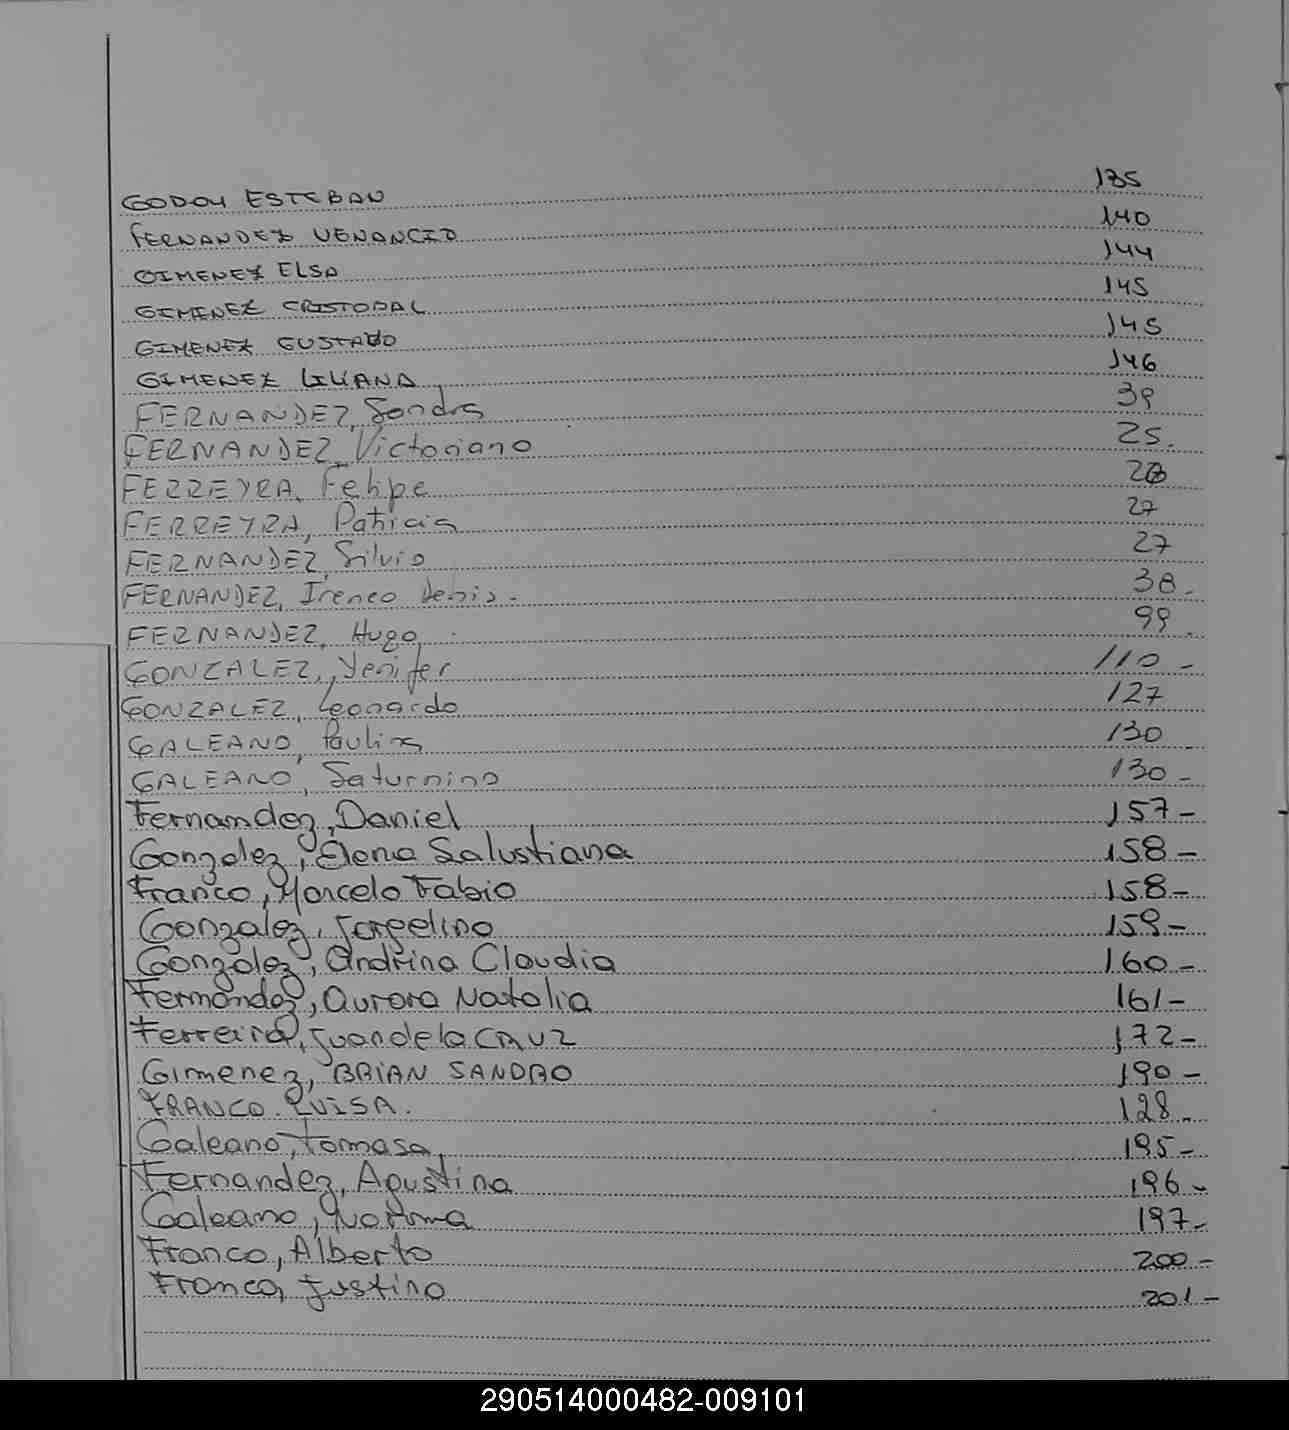 GODOY ESTEBAN 135
FERNANDEZ VENANCIO 140
GIMENEZ ELSA 144
GIMENEZ CRISTOBAL 145
GIMENEZ GUSTAVO 145
GIMENEZ LILIANA 146
FERNANDEZ, Sandra 39
FERNANDEZ, Victoriano 25.
FERREYRA, Felipe
FERREYRA, Patricia 27
FERNANDEZ, Silvio 27
FERNANDEZ, Ireneo Denis - 38 -
FERNANDEZ, Hugo 99 -
GONZALEZ, Yenifer 110 -
GONZALEZ, Leonardo 127
GALEANO, Paulina 130 -
GALEANO, Saturnino 130 -
Fernandez, Daniel 157 -
Gonzalez, Elena Salustiana 158 -
Franco, Marcelo Fabio 158 -
Gonzalez, Jorgelino 159 -
Gonzalez, Andrina Claudia 160 -
Fernandez, Aurora Natalia 161 -
Ferreira, Juan de la CRUZ 172 -
Gimenez, BRIAN SANDRO 190 -
FRANCO. LUISA. 128 -
Galeano, Tomasa 195 -
Fernandez, Agustina 196 -
Galeano, Norma 197 -
Franco, Alberto 200 -
Franco, Justino 201 -
290514000482-009101